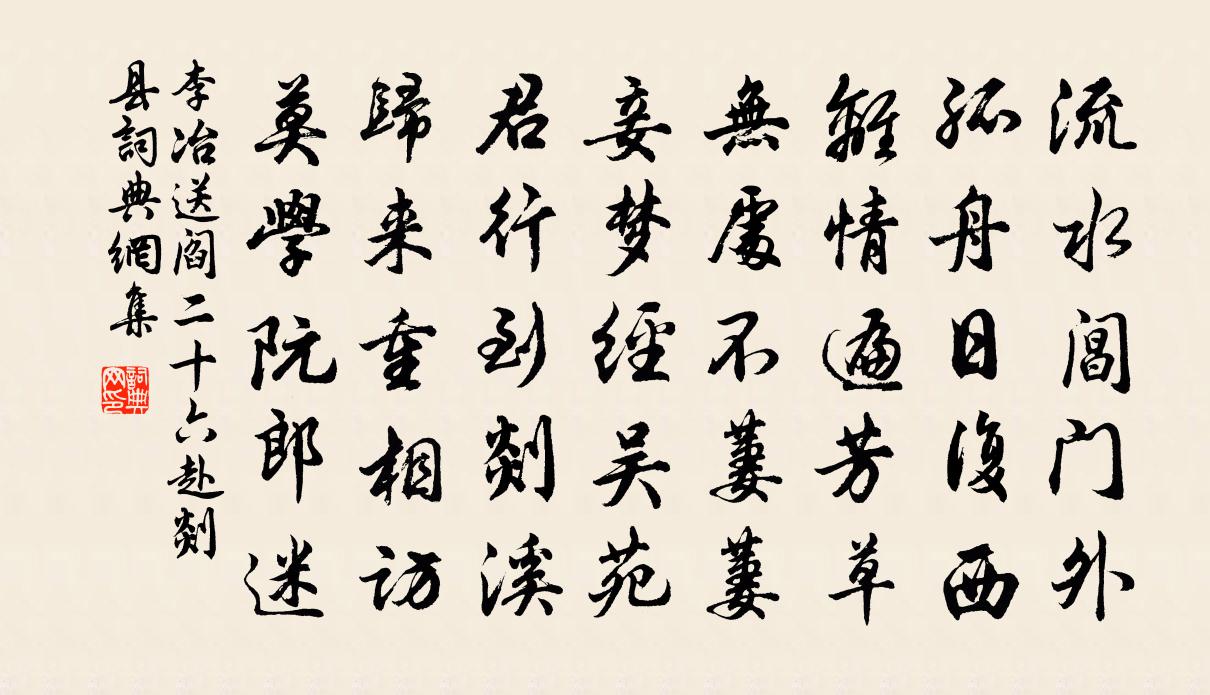 流水阊门外
孤舟日復西
離情遍芳草
無處不萋萋
妾梦經吴苑
君行到剡溪
歸来重相访
莫學阮郎迷
李冶送阎二十六赴剡
县詞典網集
詞典
网印